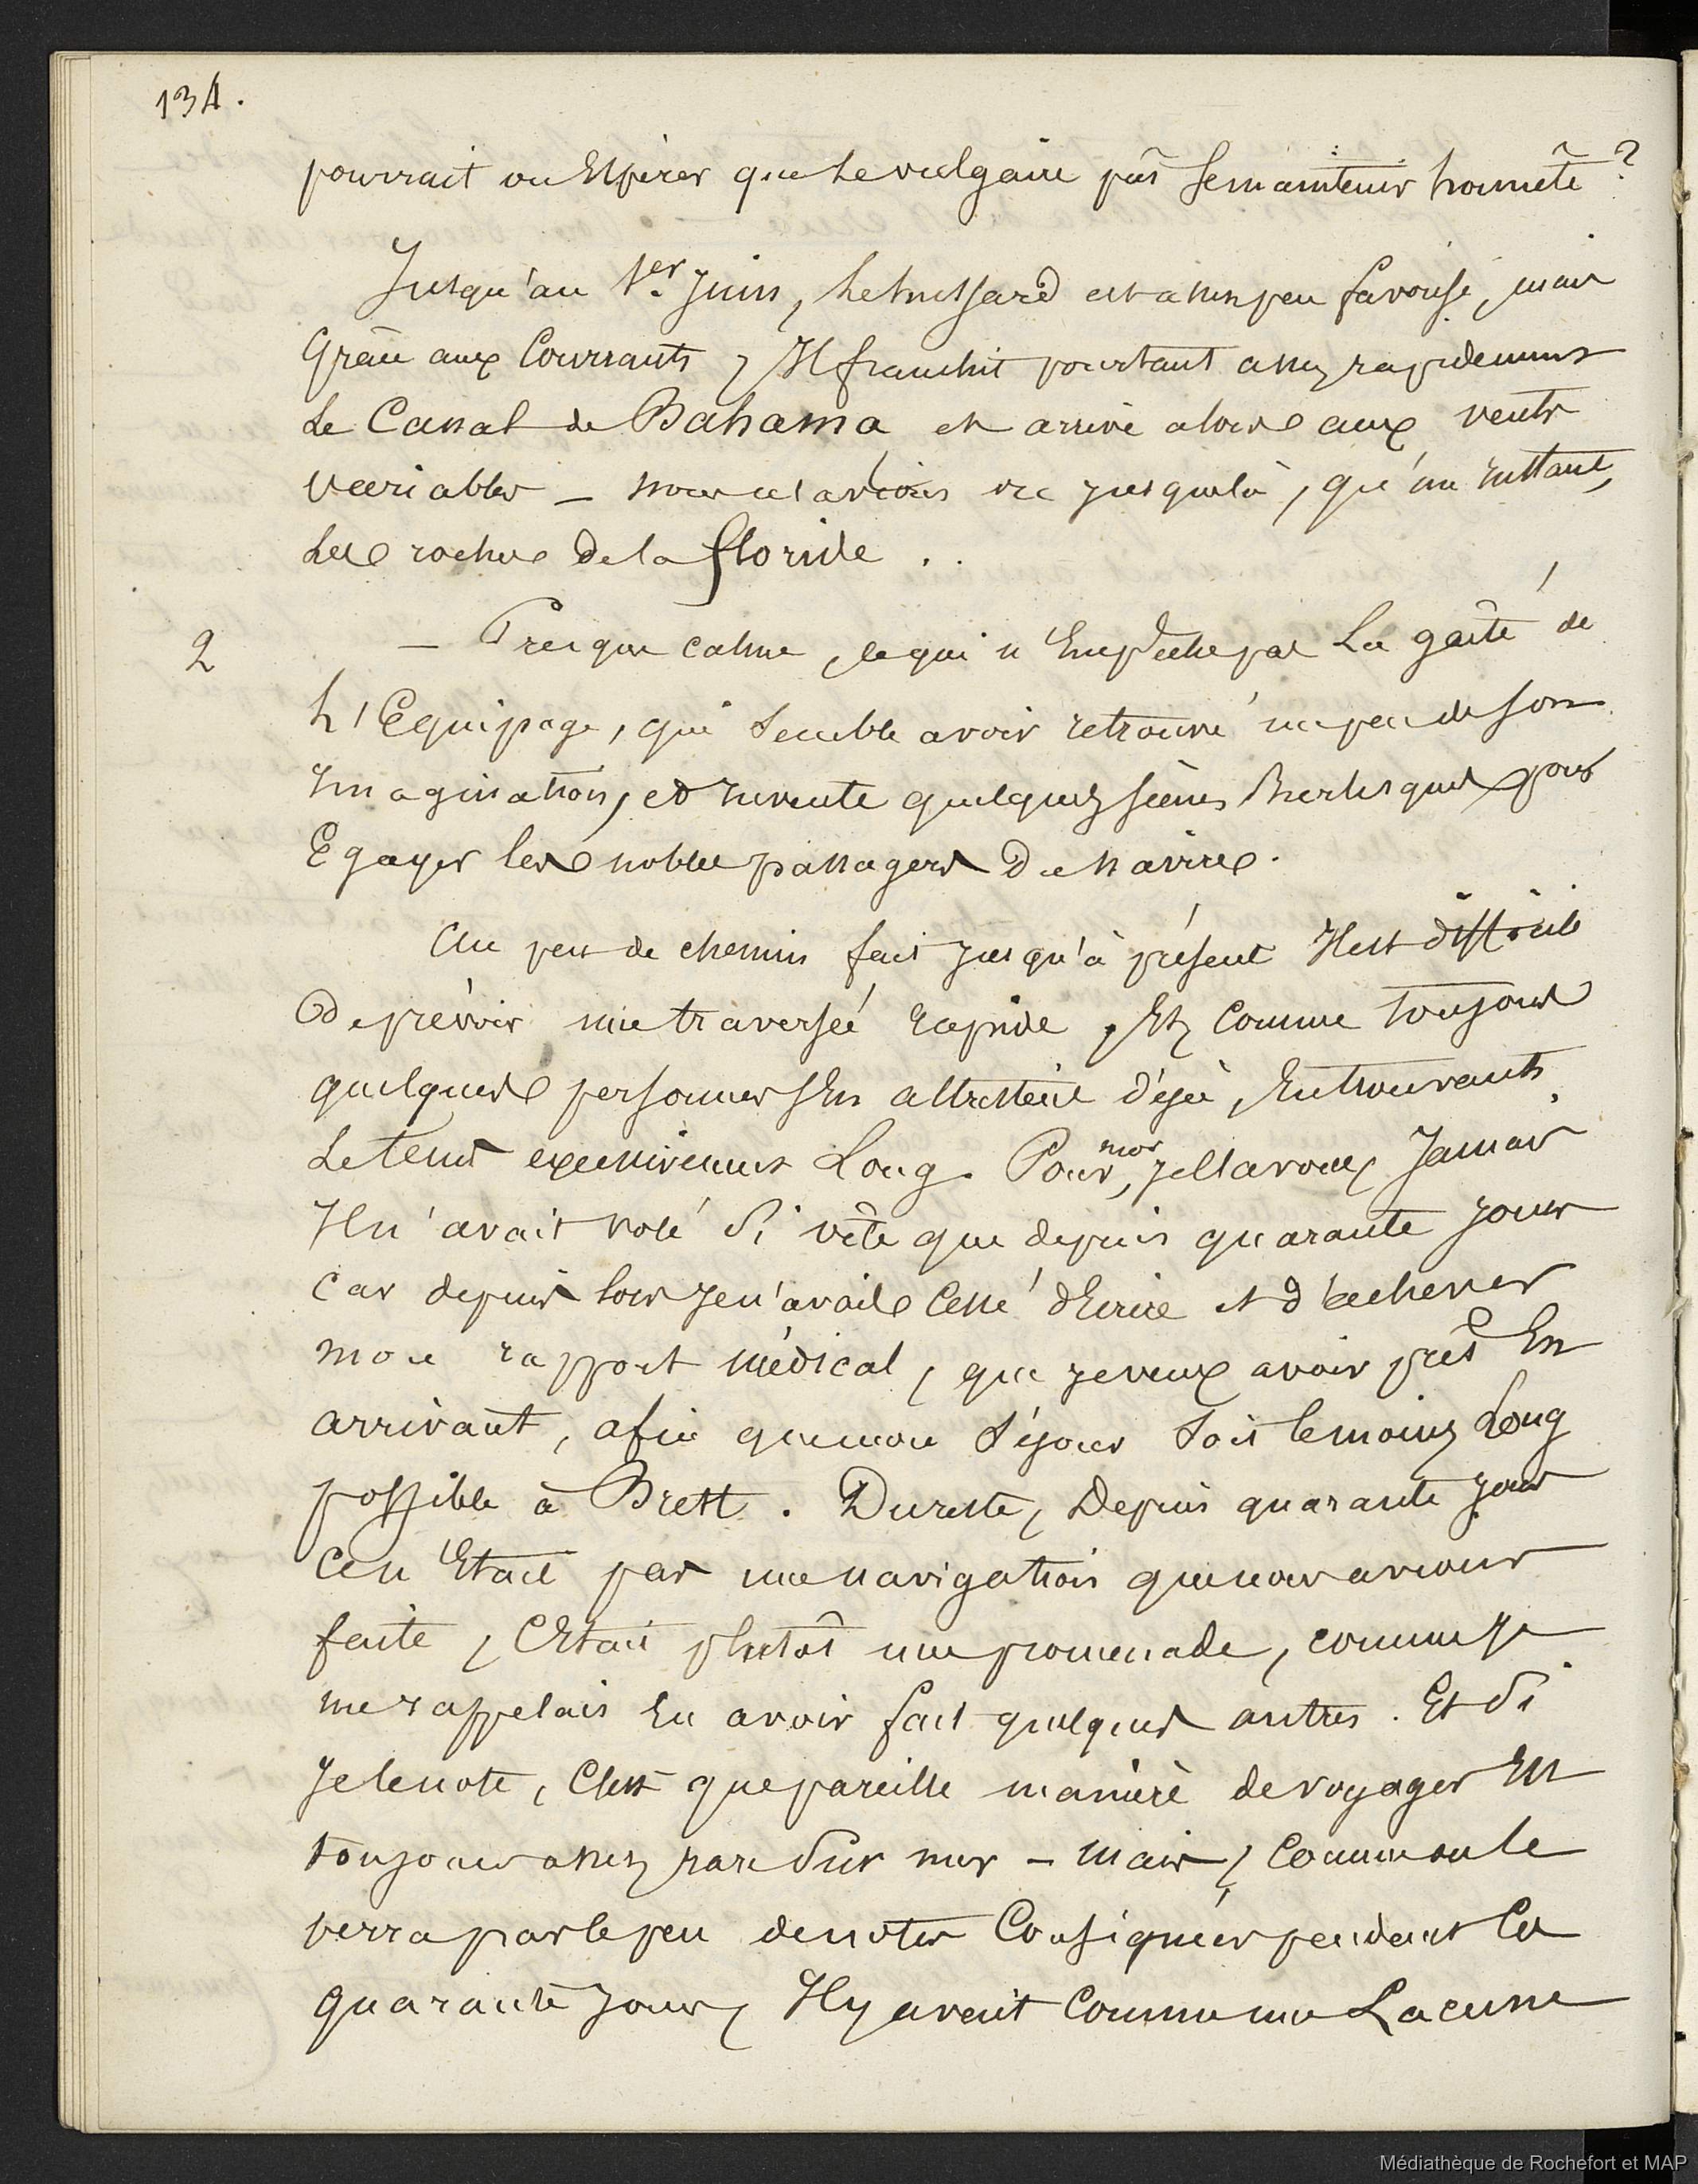 134.
pourrait on Espérer que Le vulgaire pût se maintenir honnête ?
Jusqu'au 1er Juin, Le hussard est assez peu favorisé, mais
Grâce aux Courrants, Il franchit pourtant assez rapidement
Le Canal de Bahama et arrive alors aux vents
variables _ nous n'avions vu jusque là, qu'un Instant,
Les roches de la floride .
2 _ Presque calme, ce qui n'Empêche pas La gaité de
L'Equipage, qui semble avoir retrouvé un peu de son
Imagination, et Invente quelques scènes Burlesques pour
Egayer les nobles passagers Du navire.
Au peu de chemin fait jusqu'à présent Il est difficile
De prévoir une traversée rapide, Et, Comme toujours
quelques personnes s'En attristent déjà, En trouvants
Le tems excessivement Long. Pour moi, je l'avoue, Jamais
Il n'avait volé si vite que depuis quarante jours
car depuis lors je n'avais Cessé d'Ecrire et d'achever
mon rapport médical, que je veux avoir prêt En
arrivant, afin que mon séjour soit le moins Long
possible à Brest. Dureste, Depuis quarante jours
Ce n'Etait pas une navigation que nous avions
faite, C'Etait plutôt une promenade, comme je
me rappelais En avoir fait quelques autres. Et si
Je le note, C'est que pareille manière de voyager Est
toujours assez rare sur mer _ mais, Comme on le
verra par le peu de notes Consignées pendant Ces
quarante jours, Il y avait Comme une Lacune
Médiathèque de Rochefort et MAP